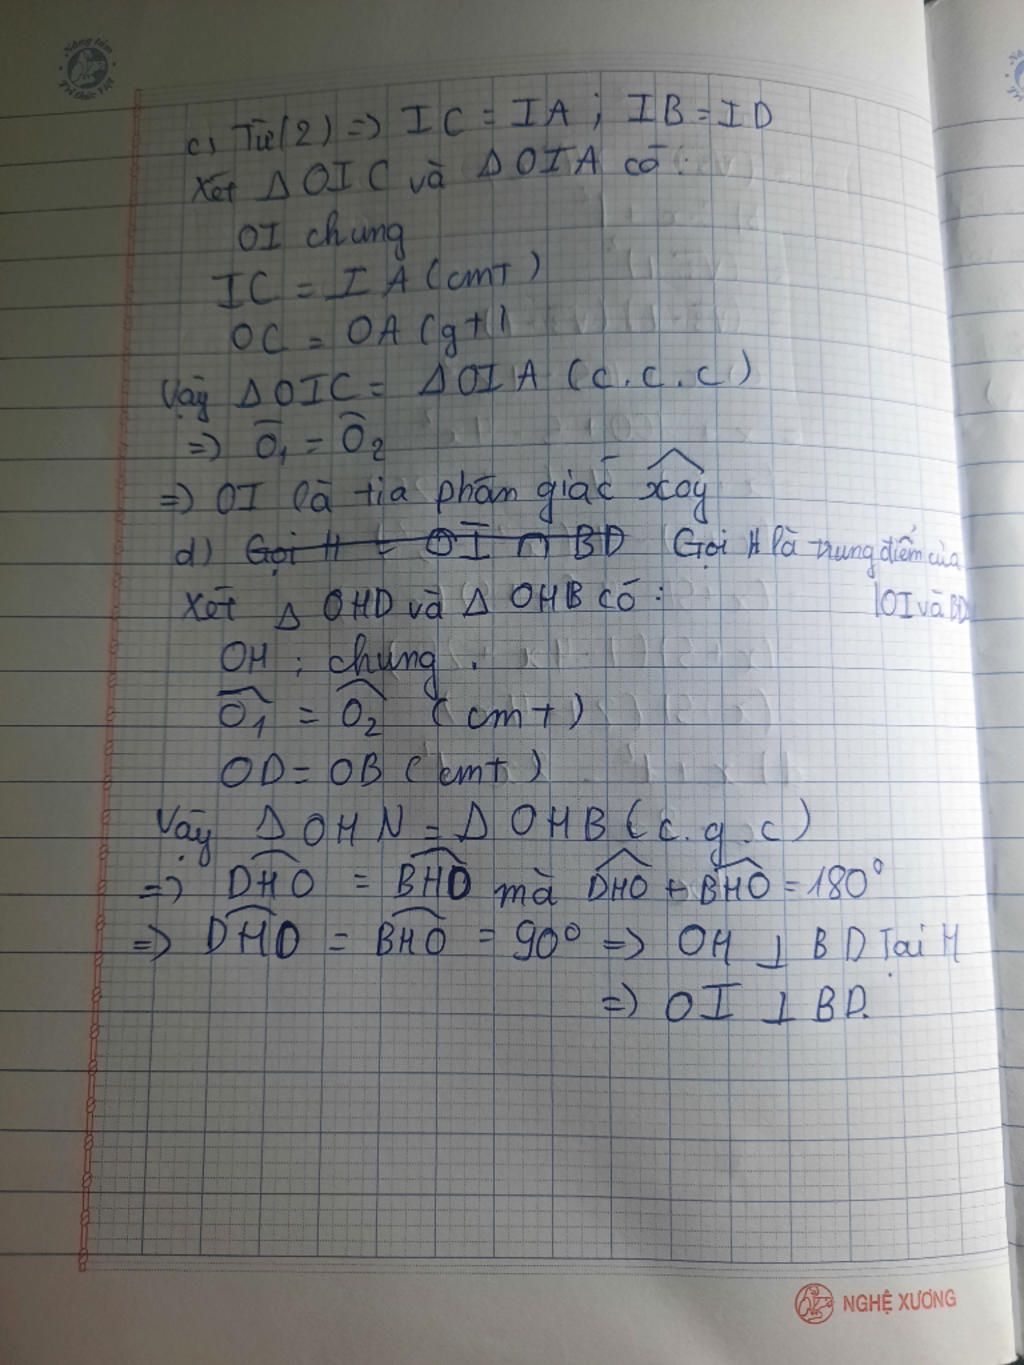 Nâng tầm
Trí thức Việt
c, Từ (2) => IC = IA ; IB = ID
Xét Δ OIC và Δ OIA có :
OI chung
IC = IA (cmt)
OC = OA (gt)
Vậy Δ OIC = Δ OIA (c.c.c)
=> Ô₁ = Ô₂
=> OI là tia phân giác xOy
d) Gọi H = OI ∩ BD Gọi H là trung điểm của
OI và BD
Xét Δ OHD và Δ OHB có :
OH : chung .
Ô₁ = Ô₂ (cmt)
OD = OB (cmt)
Vậy Δ OHN = Δ OHB (c.g.c)
=> DHO = BHO mà DHO + BHO = 180°
=> DHO = BHO = 90° => OH ⊥ BD Tại H
=> OI ⊥ BD.
NGHỆ XƯƠNG